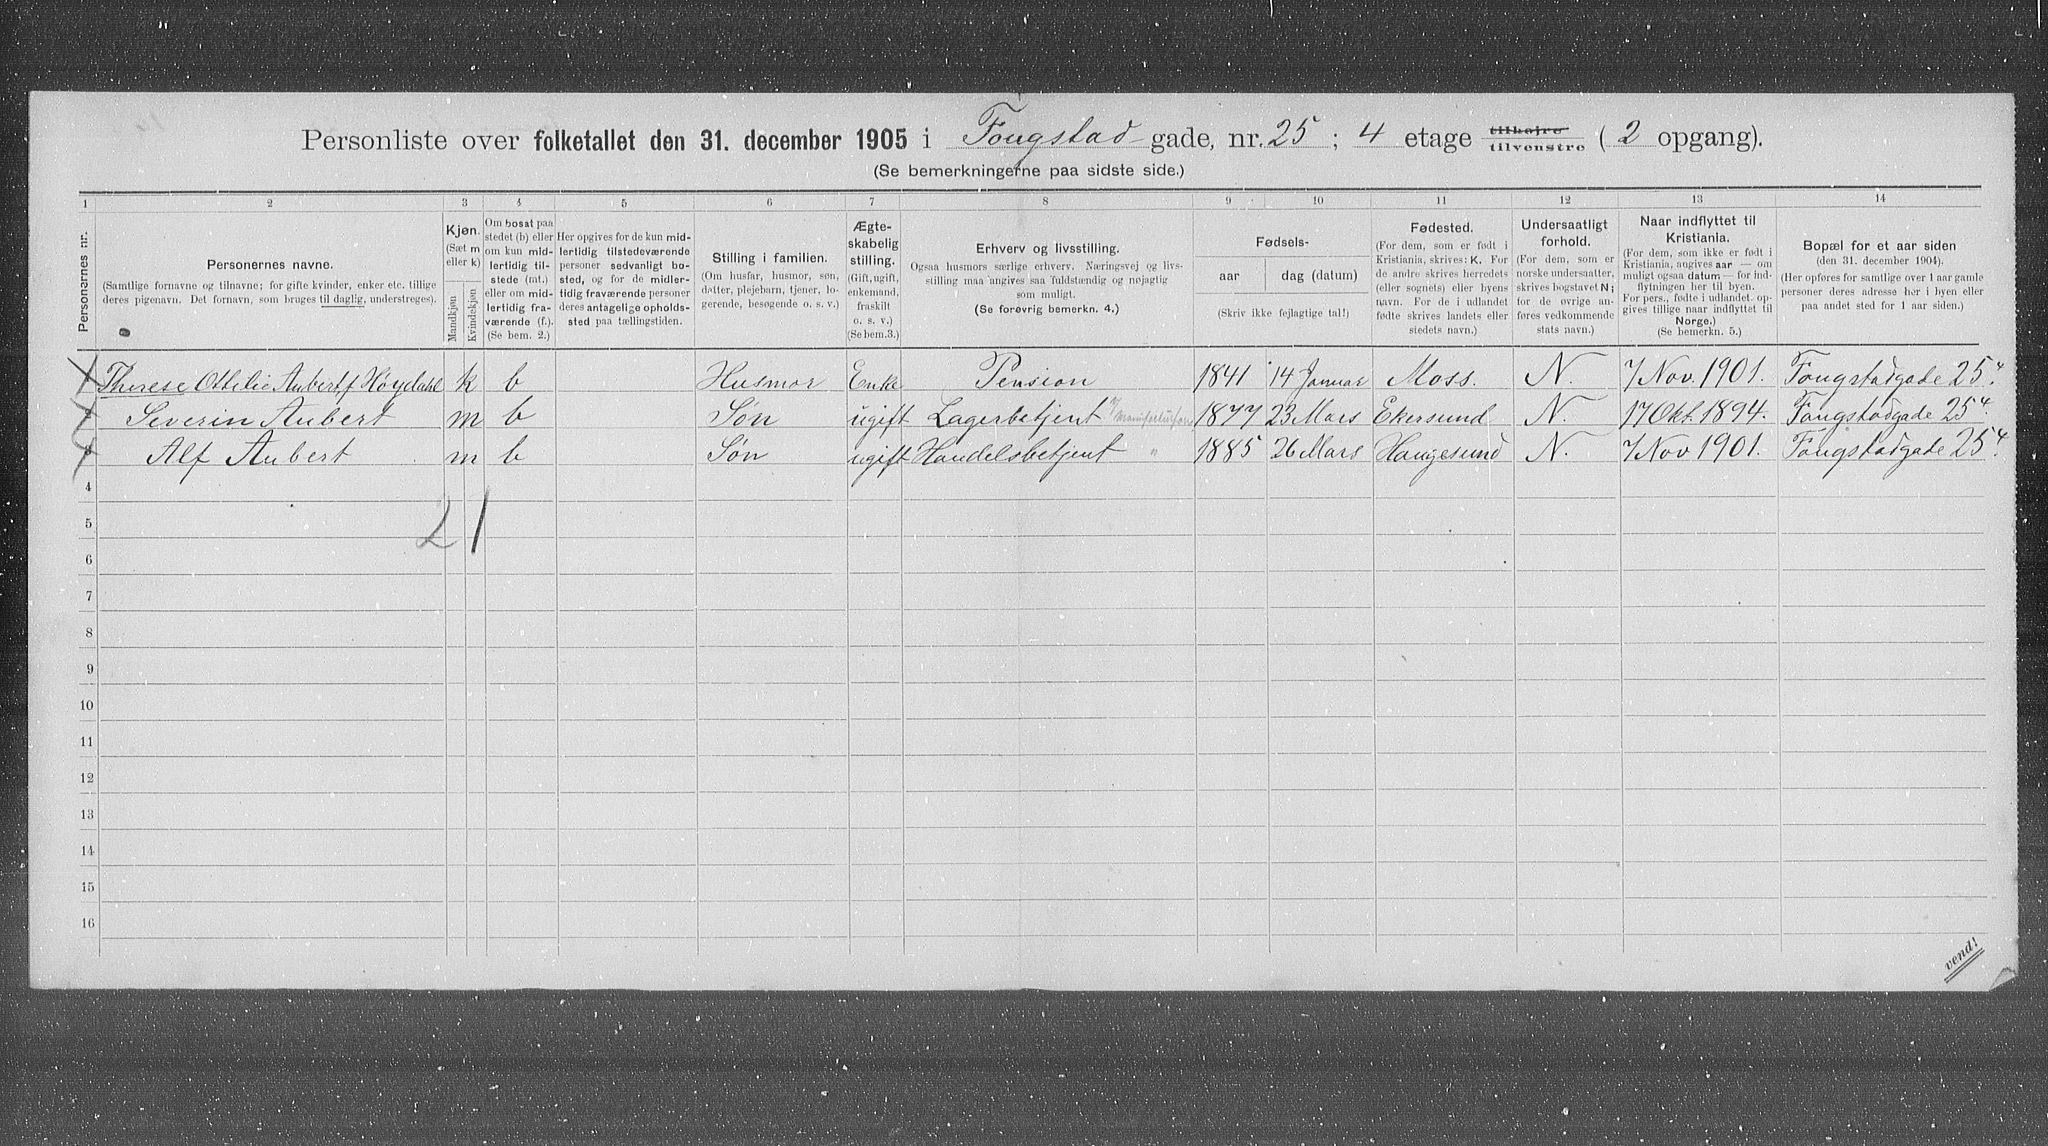 Personliste over folketallet den 31. december 1905 i Fougstad gade, nr. 25 ; 4 etage tilhøjre tilvenstre ( 2 opgang).
(Se bemerkningerne paa sidste side.)
1 2 3 4 5 6 7 8 9 10 11 12 13 14
Personernes nr.
Personernes navne.
(Samtlige fornavne og tilnavne; for gifte kvinder, enker etc. tillige
deres pigenavn. Det fornavn, som bruges til daglig, understreges).
Kjøn.
(Sæt m
eller k)
Mandkjøn
Kvindekjøn
Om bosat paa
stedet (b) eller
om kun mid-
lertidig til-
stede (mt.)
eller om mid-
lertidig fra-
værende (f.).
(Se bem. 2.)
Her opgives for de kun mid-
lertidig tilstedeværende
personer sedvanlig bo-
sted, og for de midler-
tidig fraværende personer
deres antagelige opholds-
sted paa tællingstiden.
Stilling i familien.
(Om husfar, husmor, søn,
datter, plejebarn, tjener, lo-
gerende, besøgende o. s. v.)
Ægte-
skabelig
stilling.
(Gift, ugift,
enkemand,
fraskilt
o. s. v.)
(Se bem.3.)
Erhverv og livsstilling.
Ogsaa husmors særlige erhverv. Næringsvej og livs-
stilling maa angives saa fuldstændig og nøjagtig
som muligt.
(Se forøvrig bemerkn. 4.)
Fødsels-
aar dag (datum)
(Skriv ikke fejlagtige tal!)
Fødested.
(For dem, som er født i
Kristiania, skrives: K. For
de andre skrives herredets
(eller sognets) eller byens
navn. For de i udlandet
fødte skrives landets eller
stedets navn.)
Undersaatligt
forhold.
(For dem, som er
norske undersaatter,
skrives bogstavet N;
for de øvrige an-
føres vedkommende
stats navn.)
Naar indflyttet til
Kristiania.
(For dem, som ikke er født i
Kristiania, angives aar — om
muligt ogsaa datum — for ind-
flytningen her til byen.
For pers., fødte i udlandet. op-
gives tillige naar indflyttet til
Norge.)
(Se bemerkn. 5.)
Bopæl for et aar siden
(den 31. december 1904).
(Her opføres for samtlige over 1 aar gamle
personer deres adresse her i byen eller
paa andet sted for 1 aar siden.)
1 Therese Ottilie Aubert f Høydahl k b Husmor Enke Pension 1841 14 Januar Moss. N. 7 Nov. 1901. Fougstadgade 25.4
2 Severin Aubert m b Søn ugift Lagerbetjent 1877 23 Mars Ekersund N. 17 Okt. 1894. Fougstadgade 25 4.
3 Alf Aubert m b Søn ugift Handelsbetjent " 1885 26 Mars Haugesund N. 7 Nov 1901. Fougstadgade 25 4.
4
2 1
5
6
7
8
9
10
11
12
13
14
15
16
vend!